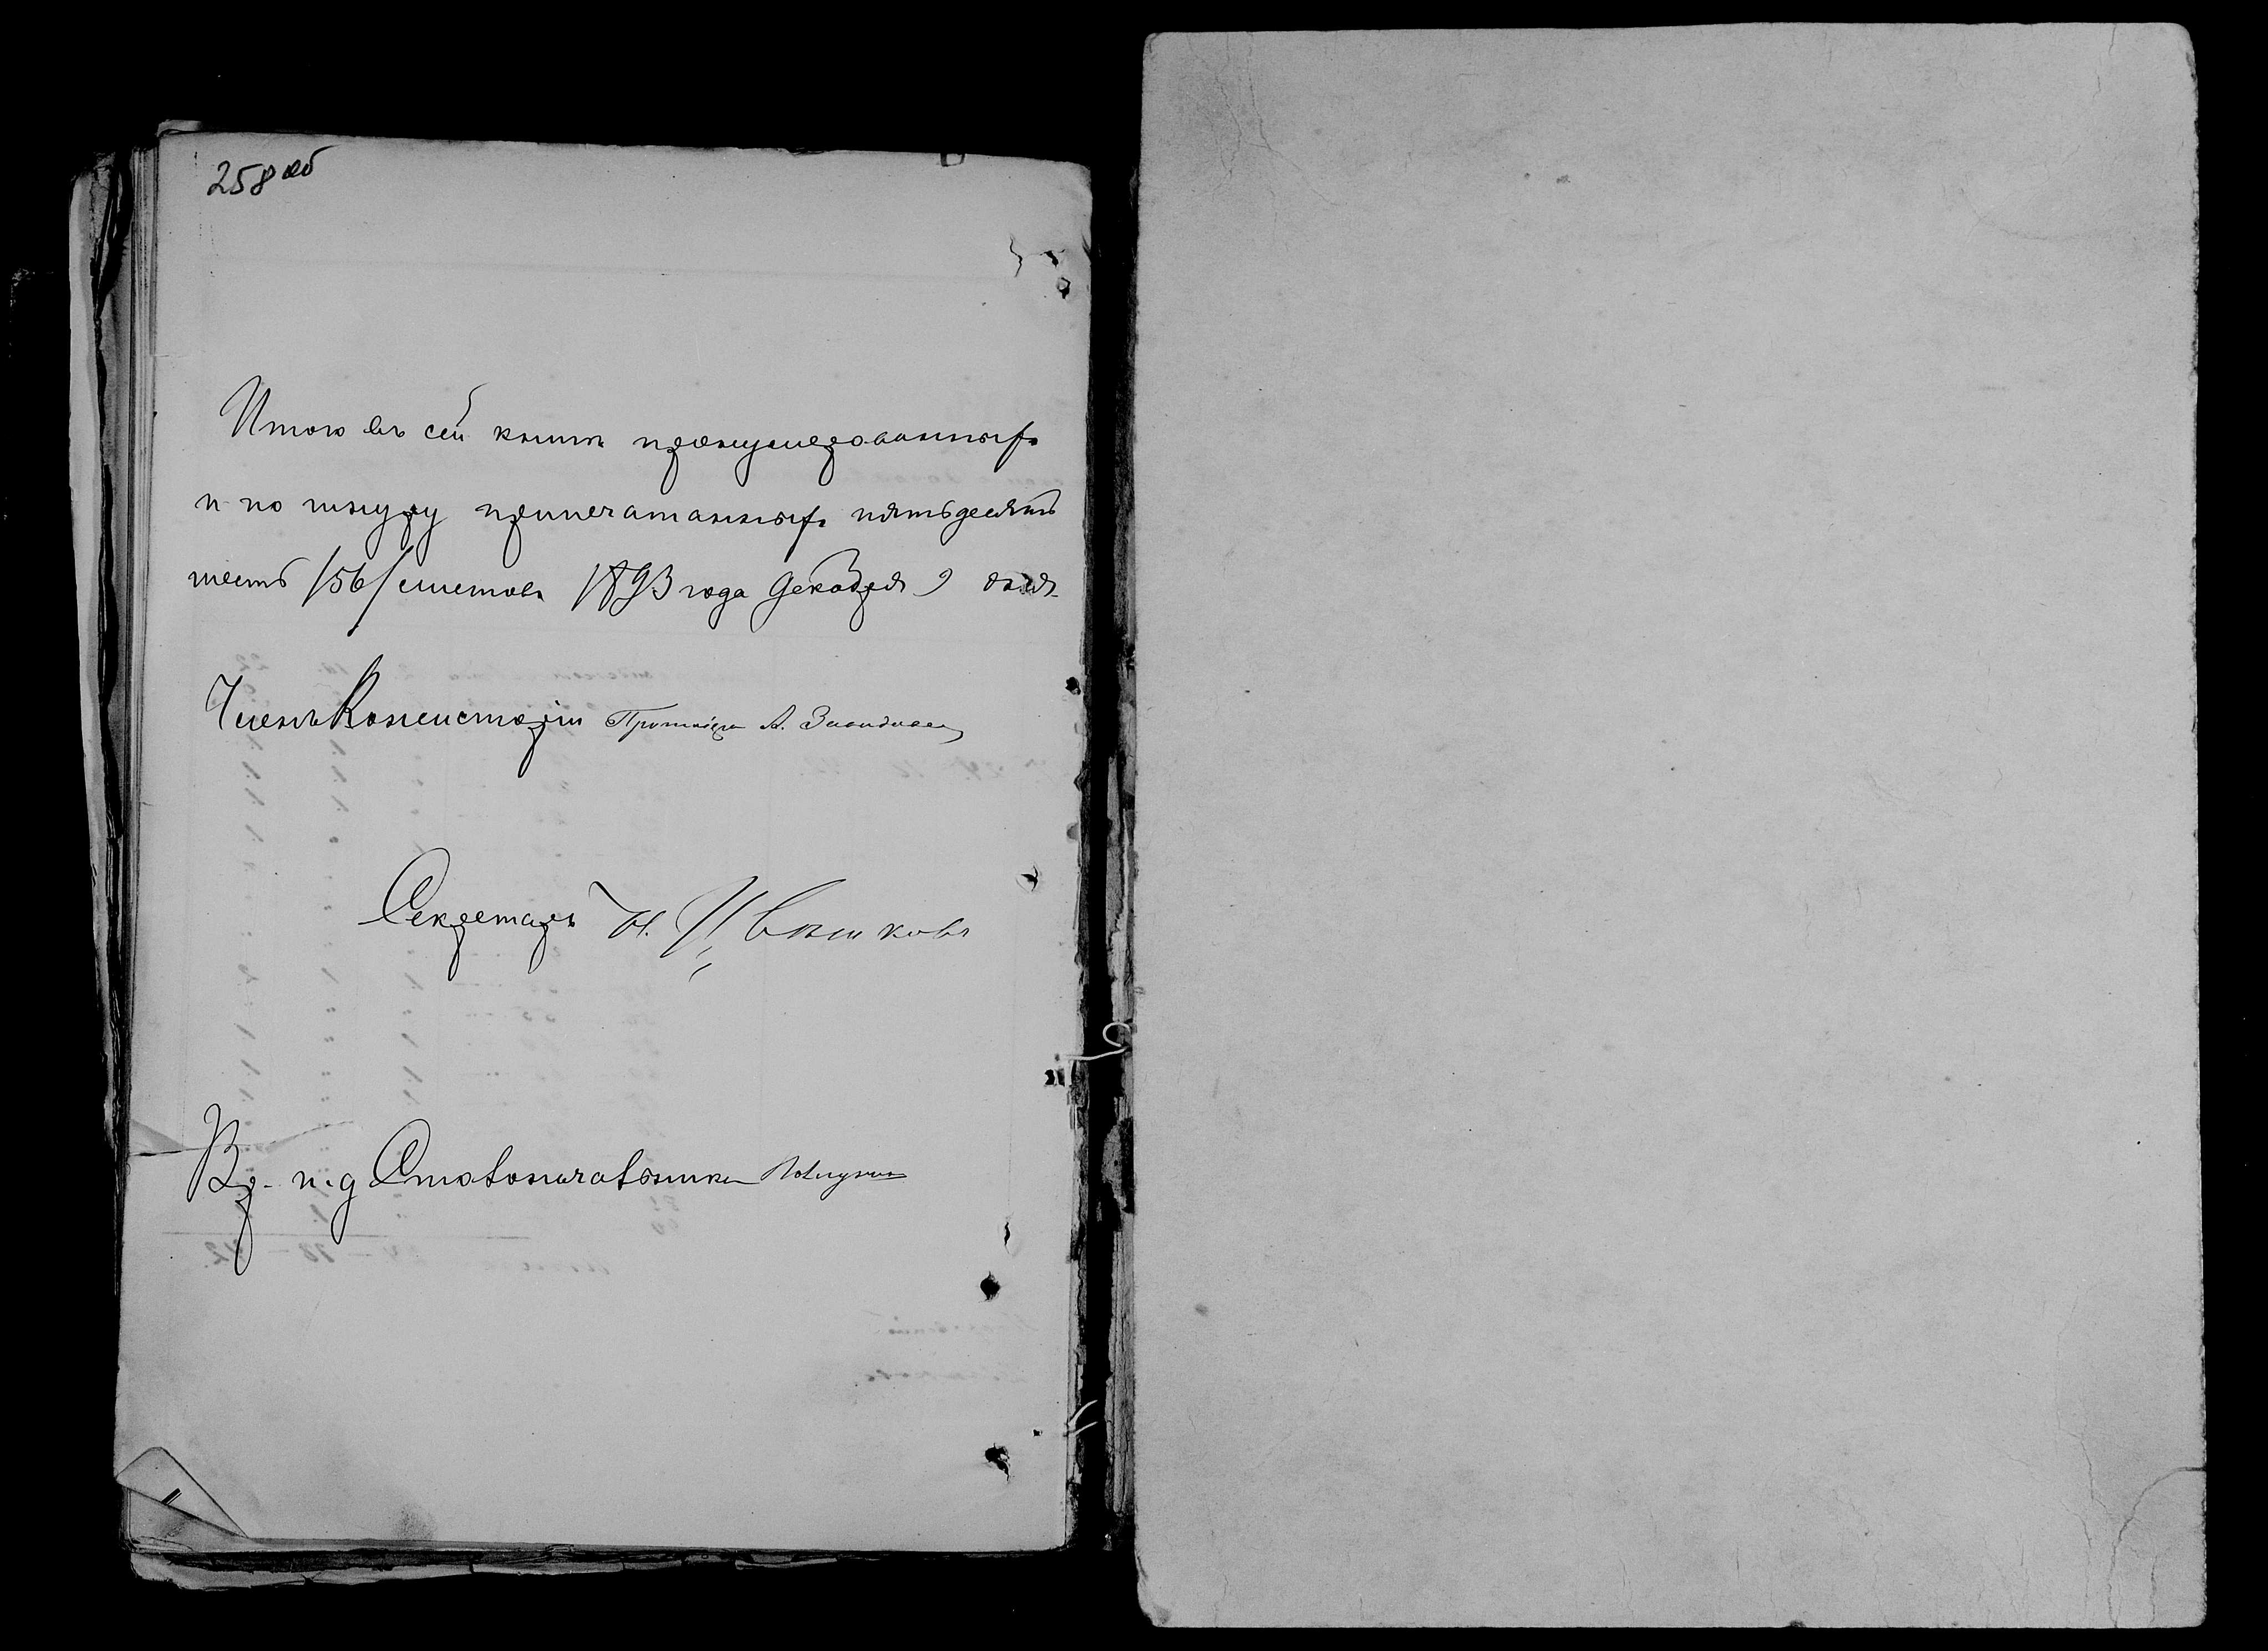 258 об
Итого въ сей книгѣ пронумерованныхъ
и по шнуру припечатанныхъ пятьдесятъ
шесть /56/ листовъ 1893 года Декабря 9 дня.
Членъ Консисторіи Протоіерей А.
Секретарь Н. Цвѣтковъ
Вр. и. д Столоначальника